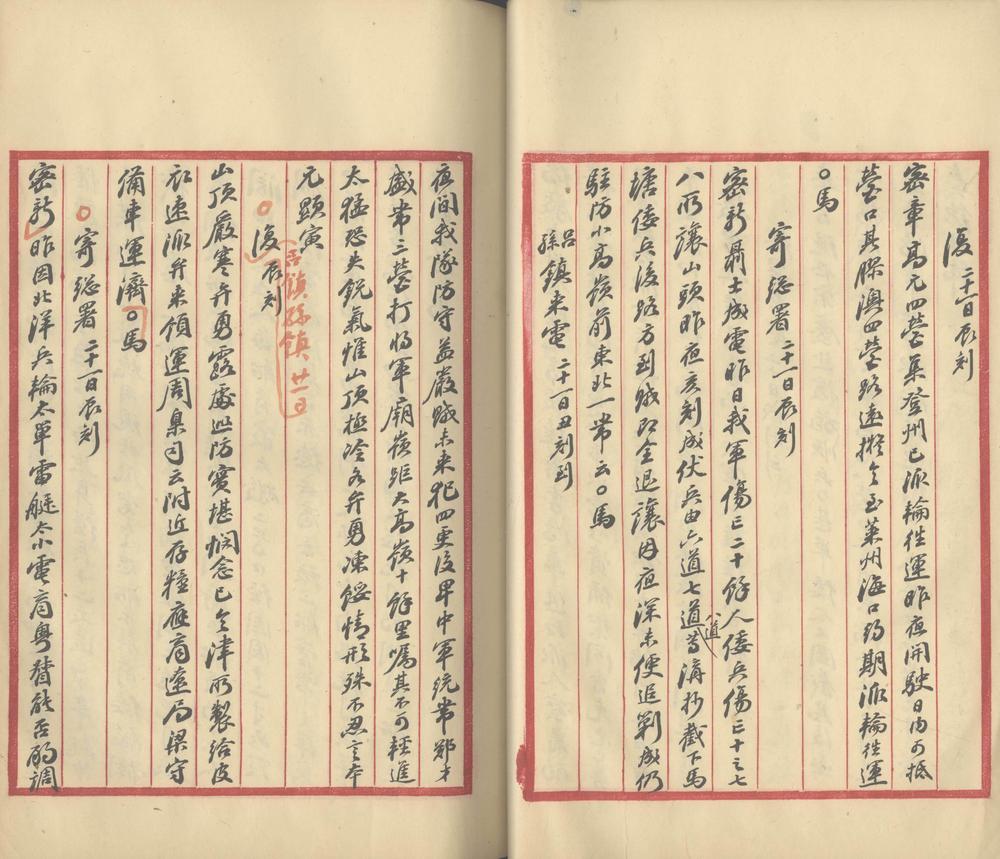 復 二十一日辰刻
密章高元四營集登州已派輪往運昨夜開駛日內可抵
營口其膠澳四營路遠擬令至萊州海口約期派輪往運
○馬
寄總署 二十一日辰刻
密新聶士成電昨日我軍傷亡二十餘人倭兵傷亡十之七
八所讓山頭昨夜亥刻成伏兵由六道七道八道等溝抄截下馬
塘倭兵後路方到賊即全退讓因夜深未便追剿成仍
駐防小高嶺前東北一帶云○馬
呂孫鎮來電 二十一日丑刻到
夜間我隊防守益嚴賊未來犯四更後早中軍統帶鄭才
盛帶三營打將軍廟嶺距大高嶺十餘里囑其不可輕進
太猛恐失銳氣惟山頂極冷各弁勇凍餒情形殊不忍言本
元顯寅
○復 辰刻
呂鎮孫鎮 廿一日
山頂嚴寒弁勇露處巡防實堪憫念已令津所製給皮
衣速派弁來領運周臬司云附近存糧應商遼局梁守
備車運濟○馬
○寄總署 二十一日辰刻
密新昨因北洋兵輪太單雷艇太小電商粵督能否酌調